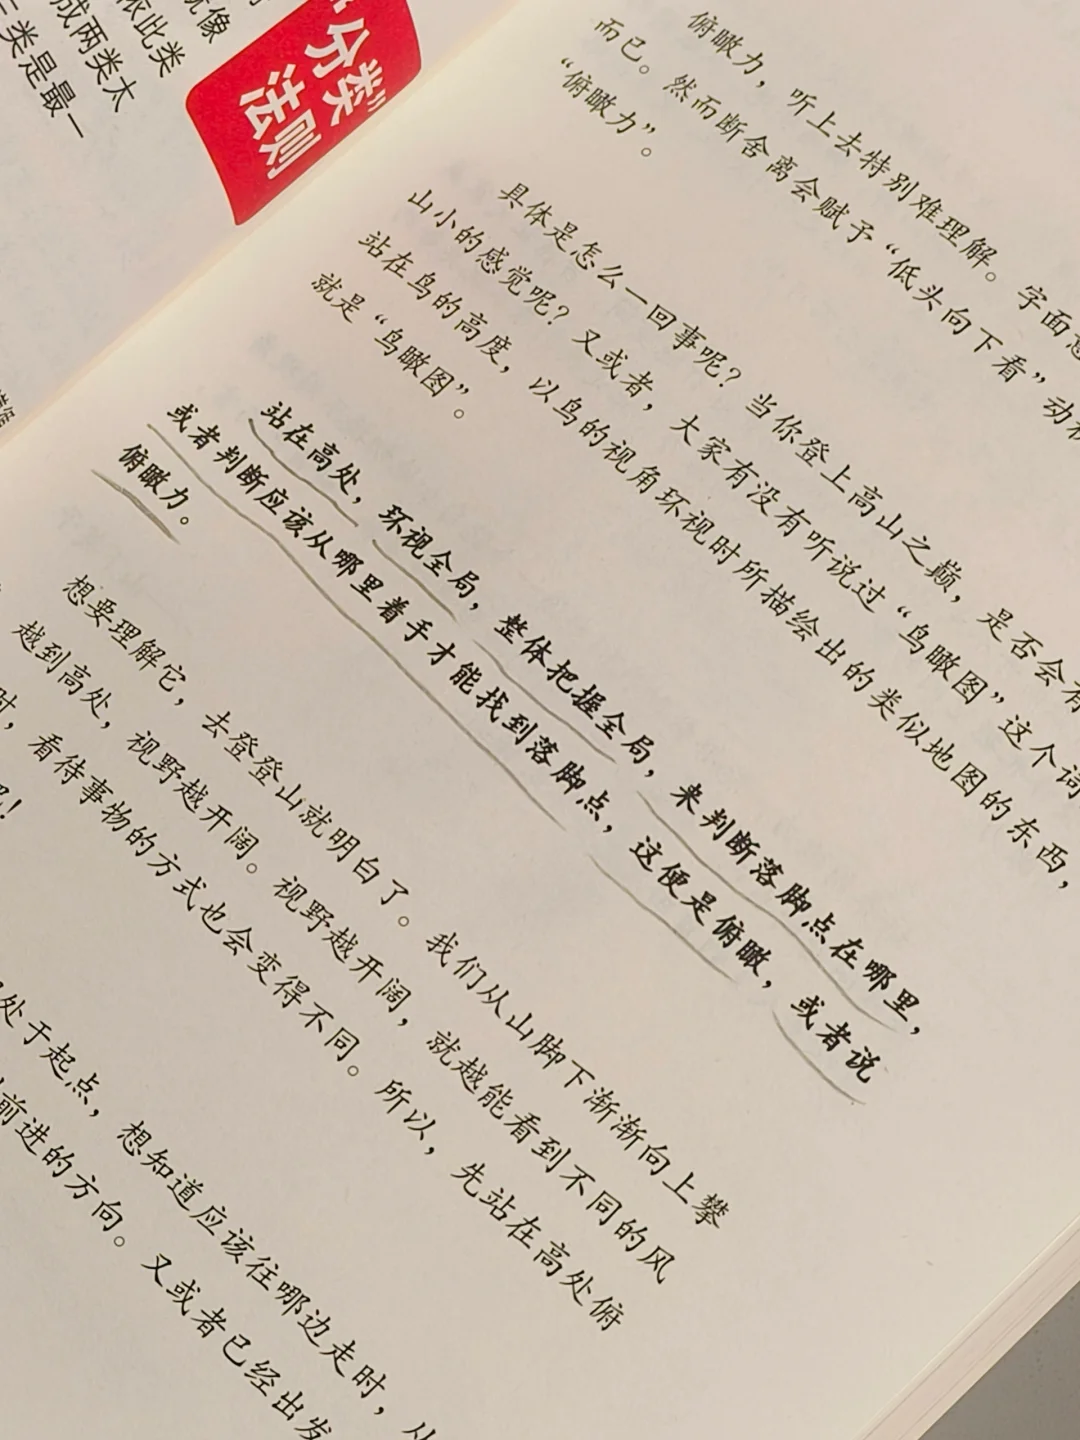 就像
依此类
成两类太
三类是最一
“分类”
法则
俯瞰力，听上去特别难理解。字面意
而已。然而断舍离会赋予“低头向下看”动
“俯瞰力”。
具体是怎么一回事呢？当你登上高山之巅，是否会有
山小的感觉呢？又或者，大家有没有听说过“鸟瞰图”这个词
站在鸟的高度，以鸟的视角环视时所描绘出的类似地图的东西，
就是“鸟瞰图”。
站在高处，环视全局，整体把握全局，来判断落脚点在哪里，
或者判断应该从哪里着手才能找到落脚点，这便是俯瞰，或者说
俯瞰力。
想要理解它，去登登山就明白了。我们从山脚下渐渐向上攀
越到高处，视野越开阔。视野越开阔，就越能看到不同的风
时，看待事物的方式也会变得不同。所以，先站在高处俯
吧！
处于起点，想知道应该往哪边走时，从
前进的方向。又或者已经出发